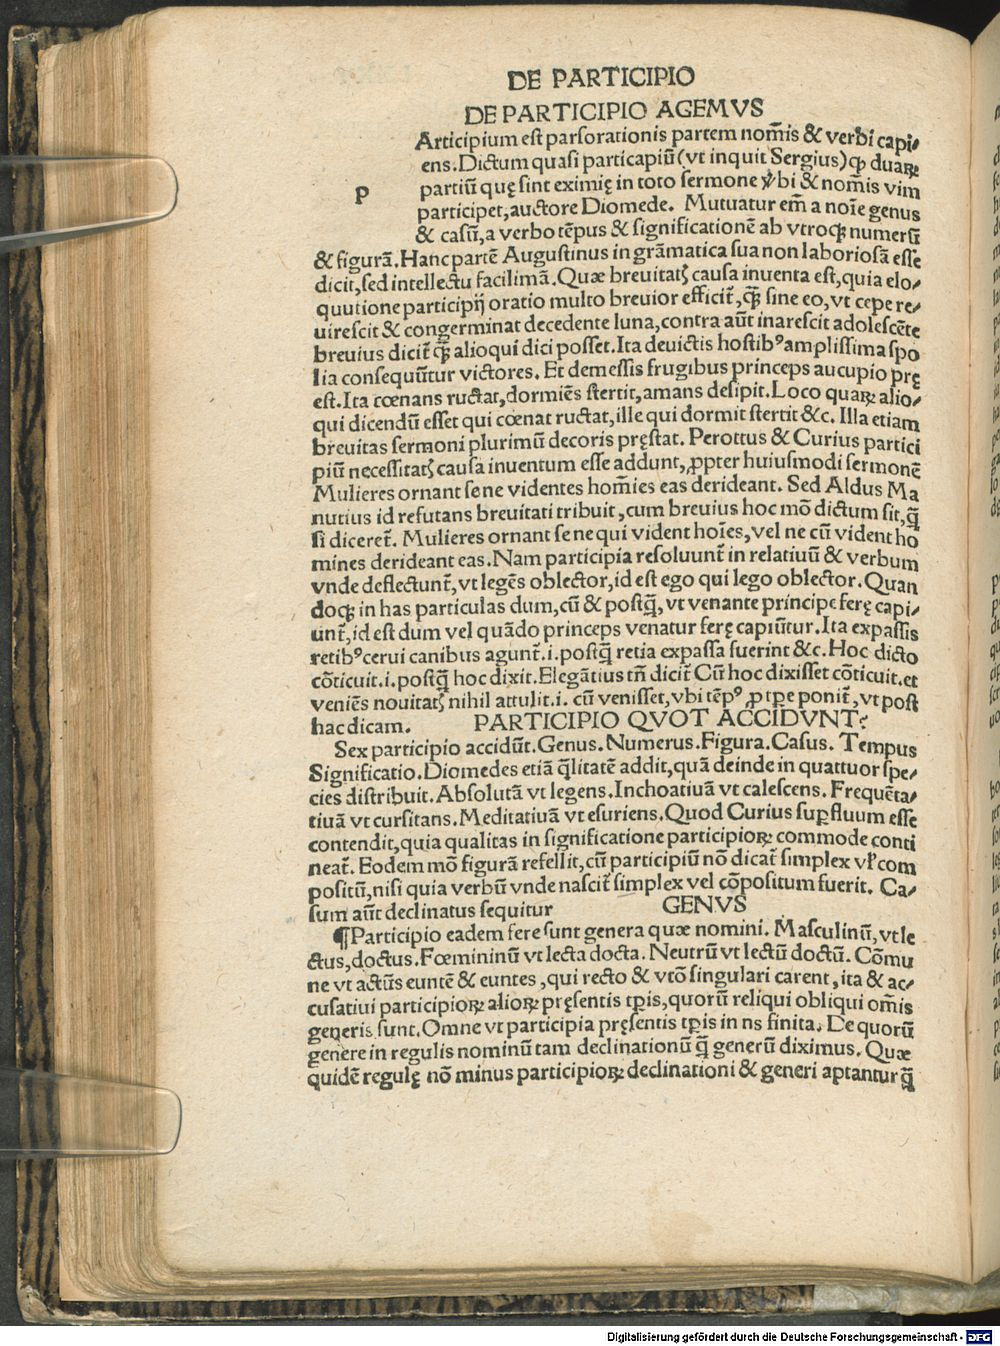 DE PARTICIPIO
DE PARTICIPIO AGEMVS
P
Articipium est parsorationis partem nom̄is & verbi capi-
ens. Dictum quasi particapiū (vt inquit Sergius) ꝙ duaꝝ
partiū quę sint eximię in toto sermone v̄bi & nom̄is vim
participet, auctore Diomede. Mutuatur em̄ a noīe genus
& casū, a verbo tēpus & significationē ab vtroqꝫ numerū
& figurā. Hanc partē Augustinus in grāmatica sua non laboriosā esse
dicit, sed intellectu facilimā. Quæ breuitatꝭ causa inuenta est, quia elo-
quutione participij oratio multo breuior efficit̄, ꝙ̄ sine eo, vt cepe re-
uirescit & congerminat decedente luna, contra aūt inarescit adolescēte
breuius dicit̄ ꝙ̄ alioqui dici posset. Ita deuictis hostibꝰ amplissima spo
lia consequūtur victores. Et demessis frugibus princeps aucupio prę
est. Ita cœnans ructat, dormiēs stertit, amans desipit. Loco quaꝝ alio-
qui dicendū esset qui cœnat ructat, ille qui dormit stertit &c. Illa etiam
breuitas sermoni plurimū decoris pręstat. Perottus & Curius partici
piū necessitatꝭ causa inuentum esse addunt, ꝓpter huiusmodi sermonē
Mulieres ornant se ne videntes hom̄ies eas derideant. Sed Aldus Ma
nutius id refutans breuitati tribuit, cum breuius hoc mō dictum sit, q̄
si diceret̄. Mulieres ornant se ne qui vident hoīes, vel ne cū vident ho
mines derideant eas. Nam participia resoluunt̄ in relatiuū & verbum
vnde deflectunt̄, vt legēs oblector, id est ego qui lego oblector. Quan
doqꝫ in has particulas dum, cū & postq̄, vt venante principe ferę capi-
unt̄, id est dum vel quādo princeps venatur ferę capiūtur. Ita expassis
retibꝰ cerui canibus agunt̄ .i. postq̄ retia expassa fuerint &c. Hoc dicto
cōticuit .i. postq̄ hoc dixit. Elegātius tn̄ dicit̄ Cū hoc dixisset cōticuit. et
veniēs nouitatꝭ nihil attulit .i. cū venisset, vbi tēpꝰ ꝓ tꝑe ponit̄, vt post
hac dicam. PARTICIPIO QVOT ACCIDVNT?
Sex participio accidūt. Genus. Numerus. Figura. Casus. Tempus
Significatio. Diomedes etiā q̄litatē addit, quā deinde in quattuor spe-
cies distribuit. Absolutā vt legens. Inchoatiuā vt calescens. Frequēta-
tiuā vt cursitans. Meditatiuā vt esuriens. Quod Curius suꝑfluum esse
contendit, quia qualitas in significatione participioꝝ commode conti
neat̄. Eodem mō figurā refellit, cū participiū nō dicat̄ simplex vl̓ com
positū, nisi quia verbū vnde nascit̄ simplex vel cōpositum fuerit. Ca-
sum aūt declinatus sequitur GENVS
¶Participio eadem fere sunt genera quæ nomini. Masculinū, vt le
ctus, doctus. Fœmininū vt lecta docta. Neutrū vt lectū doctū. Cōmu
ne vt actūs euntē & euntes, qui recto & vtō singulari carent, ita & ac-
cusatiui participioꝝ alioꝝ pręsentis tꝑis, quorū reliqui obliqui om̄is
generis sunt. Omne vt participia pręsentis tꝑis in ns finita. De quorū
genere in regulis nominū tam declinationū q̄ generū diximus. Quæ
quidē regulę nō minus participioꝝ declinationi & generi aptantur q̄
Digitalisierung gefördert durch die Deutsche Forschungsgemeinschaft - DFG